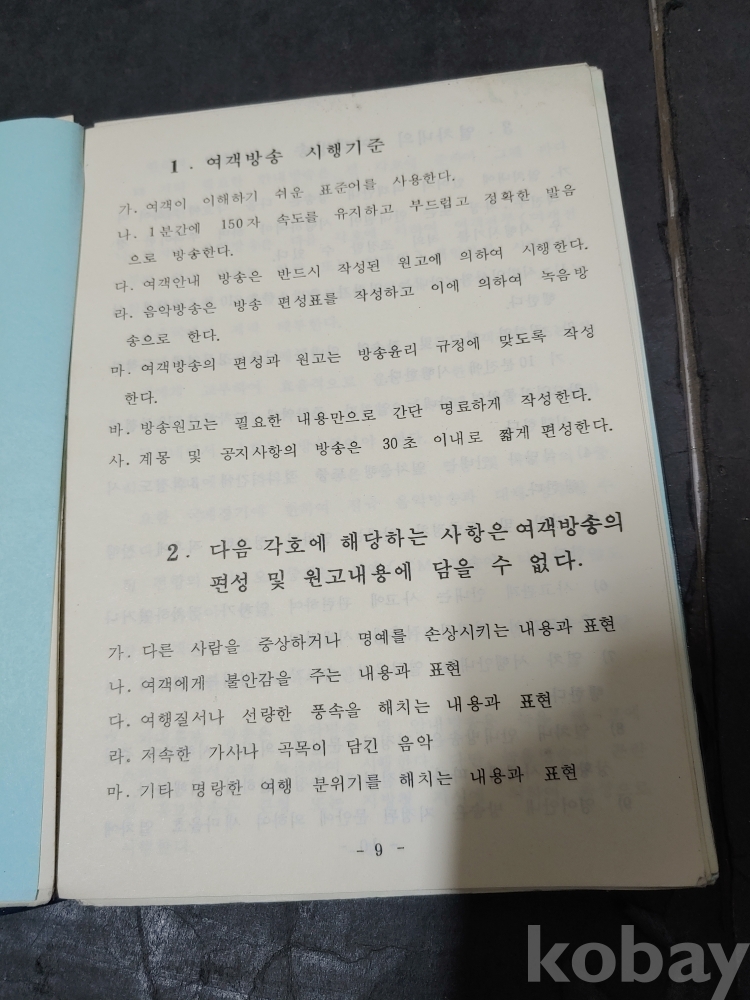 1. 여객방송 시행기준
가. 여객이 이해하기 쉬운 표준어를 사용한다.
나. 1분간에 150자 속도를 유지하고 부드럽고 정확한 발음
으로 방송한다.
다. 여객안내 방송은 반드시 작성된 원고에 의하여 시행한다.
라. 음악방송은 방송 편성표를 작성하고 이에 의하여 녹음방
송으로 한다.
마. 여객방송의 편성과 원고는 방송윤리 규정에 맞도록 작성
한다.
바. 방송원고는 필요한 내용만으로 간단 명료하게 작성한다.
사. 계몽 및 공지사항의 방송은 30초 이내로 짧게 편성한다.
2. 다음 각호에 해당하는 사항은 여객방송의
편성 및 원고내용에 담을 수 없다.
가. 다른 사람을 중상하거나 명예를 손상시키는 내용과 표현
나. 여객에게 불안감을 주는 내용과 표현
다. 여행질서나 선량한 풍속을 해치는 내용과 표현
라. 저속한 가사나 곡목이 담긴 음악
마. 기타 명랑한 여행 분위기를 해치는 내용과 표현
- 9 -
kobay